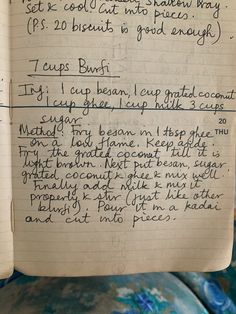 Set & cool. Cut into pieces.
(P.S. 20 biscuits is good enough)
7 cups Burfi
Ing: 1 cup besan, 1 cup grated coconut
1 cup ghee, 1 cup milk 3 cups
sugar
20
THU
Method: Fry besan in 1 tbsp ghee
on a low flame. Keep aside.
Fry the grated coconut till it is
light brown. Next put besan, sugar
grated, coconut & ghee & mix well.
Finally add milk & mix it
properly & stir (just like other
burfi). Pour it in a kadai
and cut into pieces.